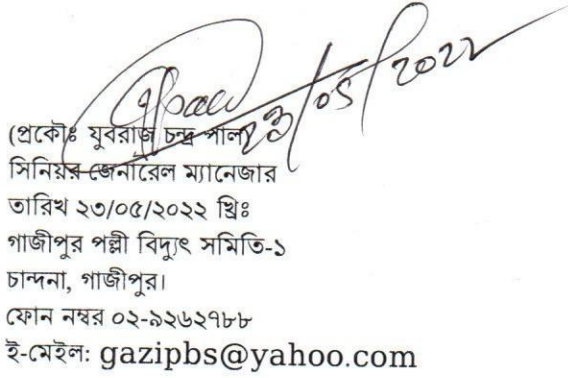 ২৩/০৫/২০২২
(প্রকৌঃ যুবরাজ চন্দ্র পাল)
সিনিয়র জেনারেল ম্যানেজার
তারিখ ২৩/০৫/২০২২ খ্রিঃ
গাজীপুর পল্লী বিদ্যুৎ সমিতি-১
চান্দনা, গাজীপুর।
ফোন নম্বর ০২-৯২৬২৭৮৮
ই-মেইল: gazipbs@yahoo.com